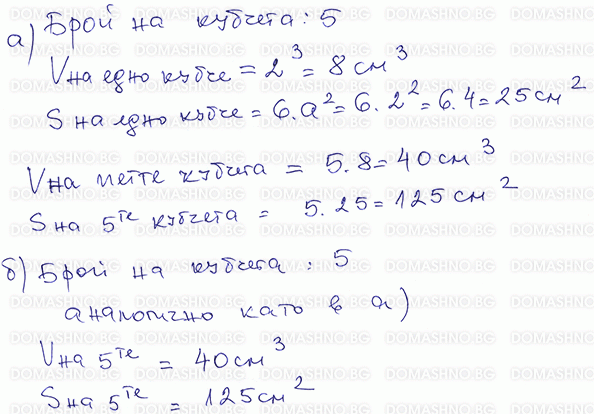 а) Брой на кубчета: 5
V на едно кубче = 2³ = 8 см³
S на едно кубче = 6.a² = 6.2² = 6.4 = 25 см²
V на петте кубчета = 5.8 = 40 см³
S на 5те кубчета = 5.25 = 125 см²
б) Брой на кубчета: 5
аналогично като в а)
V на 5те = 40 см³
S на 5те = 125 см²
DOMASHNO.BG